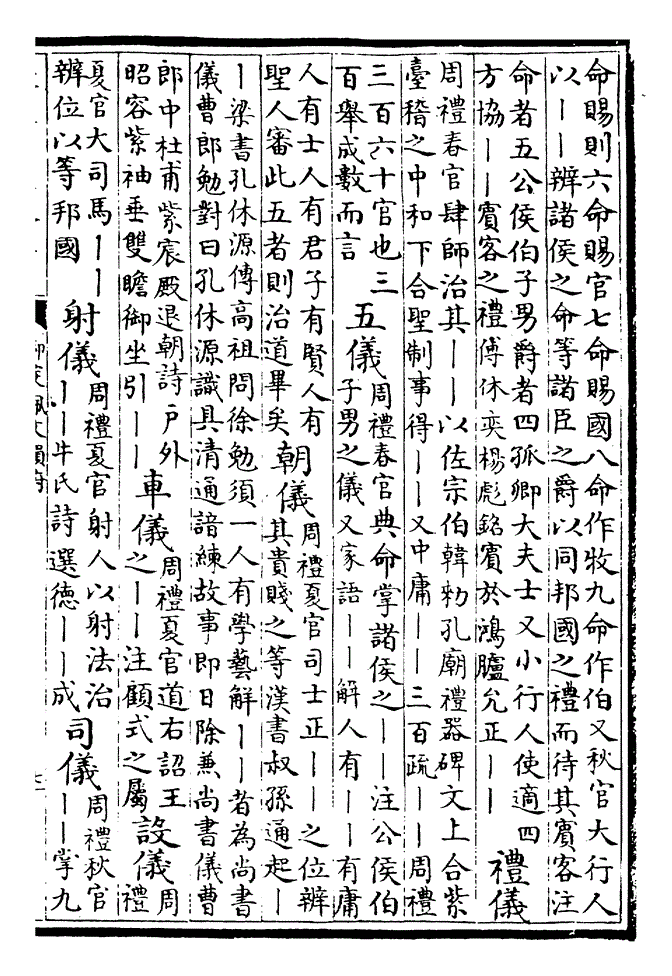 命賜則六命賜官七命賜國八命作牧九命作伯又秋官大行人
以丨丨辨諸侯之命等諸臣之爵以同邦國之禮而待其賓客注
命者五公侯伯子男爵者四孤卿大夫士又小行人使適四
方協丨丨賓客之禮傅休奕楊彪銘賓於鴻臚允正丨丨
禮儀
周禮春官肆師治其丨丨以佐宗伯韓勑孔廟禮器碑文上合紫
臺稽之中和下合聖制事得丨丨又中庸丨丨三百疏丨丨周禮
三百六十官也三
百舉成數而言
五儀
周禮春官典命掌諸侯之丨丨注公侯伯
子男之儀又家語丨丨解人有丨丨有庸
人有士人有君子有賢人有
聖人審此五者則治道畢矣
朝儀
周禮夏官司士正丨丨之位辨
其貴賤之等漢書叔孫通起丨
丨梁書孔休源傳高祖問徐勉須一人有學藝解丨丨者為尚書
儀曹郎勉對曰孔休源識具清通諳練故事即日除兼尚書儀曹
郎中杜甫紫宸殿退朝詩戶外
昭容紫袖垂雙瞻御坐引丨丨
車儀
周禮夏官道右詔王
之丨丨注顧式之屬
設儀
周
禮
夏官大司馬丨丨
辨位以等邦國
射儀
周禮夏官射人以射法治
丨丨牛氏詩選德丨丨成
司儀
周禮秋官
丨丨掌九